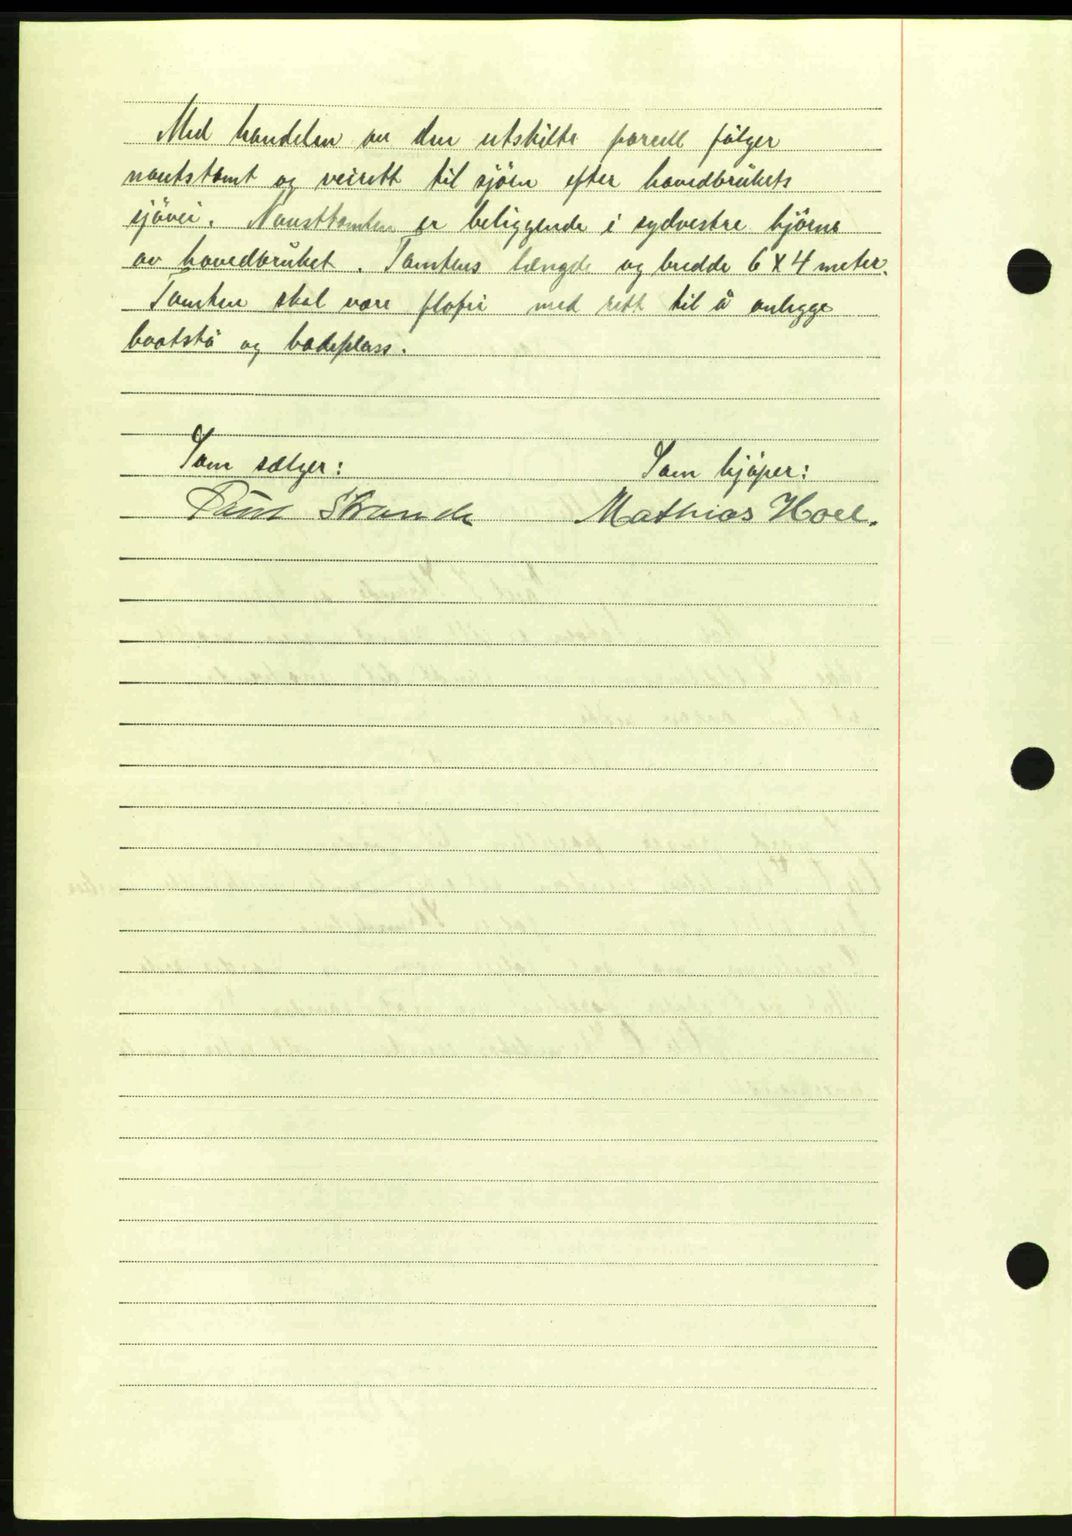 Med handelen av den utskilte parcell følger
nauststomt og veirett til sjöen efter hovedbrükets
sjövei. Nausttomten er beliggende i sydvestre hjörne
av hovedbrüket. Tomtens længde og bredde 6 X 4 meter.
Tomten skal være flofri med rett til å anlegge
baatstö og badeplass.
Som sælger: Som kjøper:
Paul Strande Mathias Hoel.